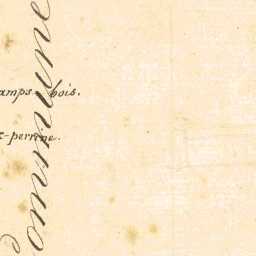 amps-bois.
-perrine.
ommune